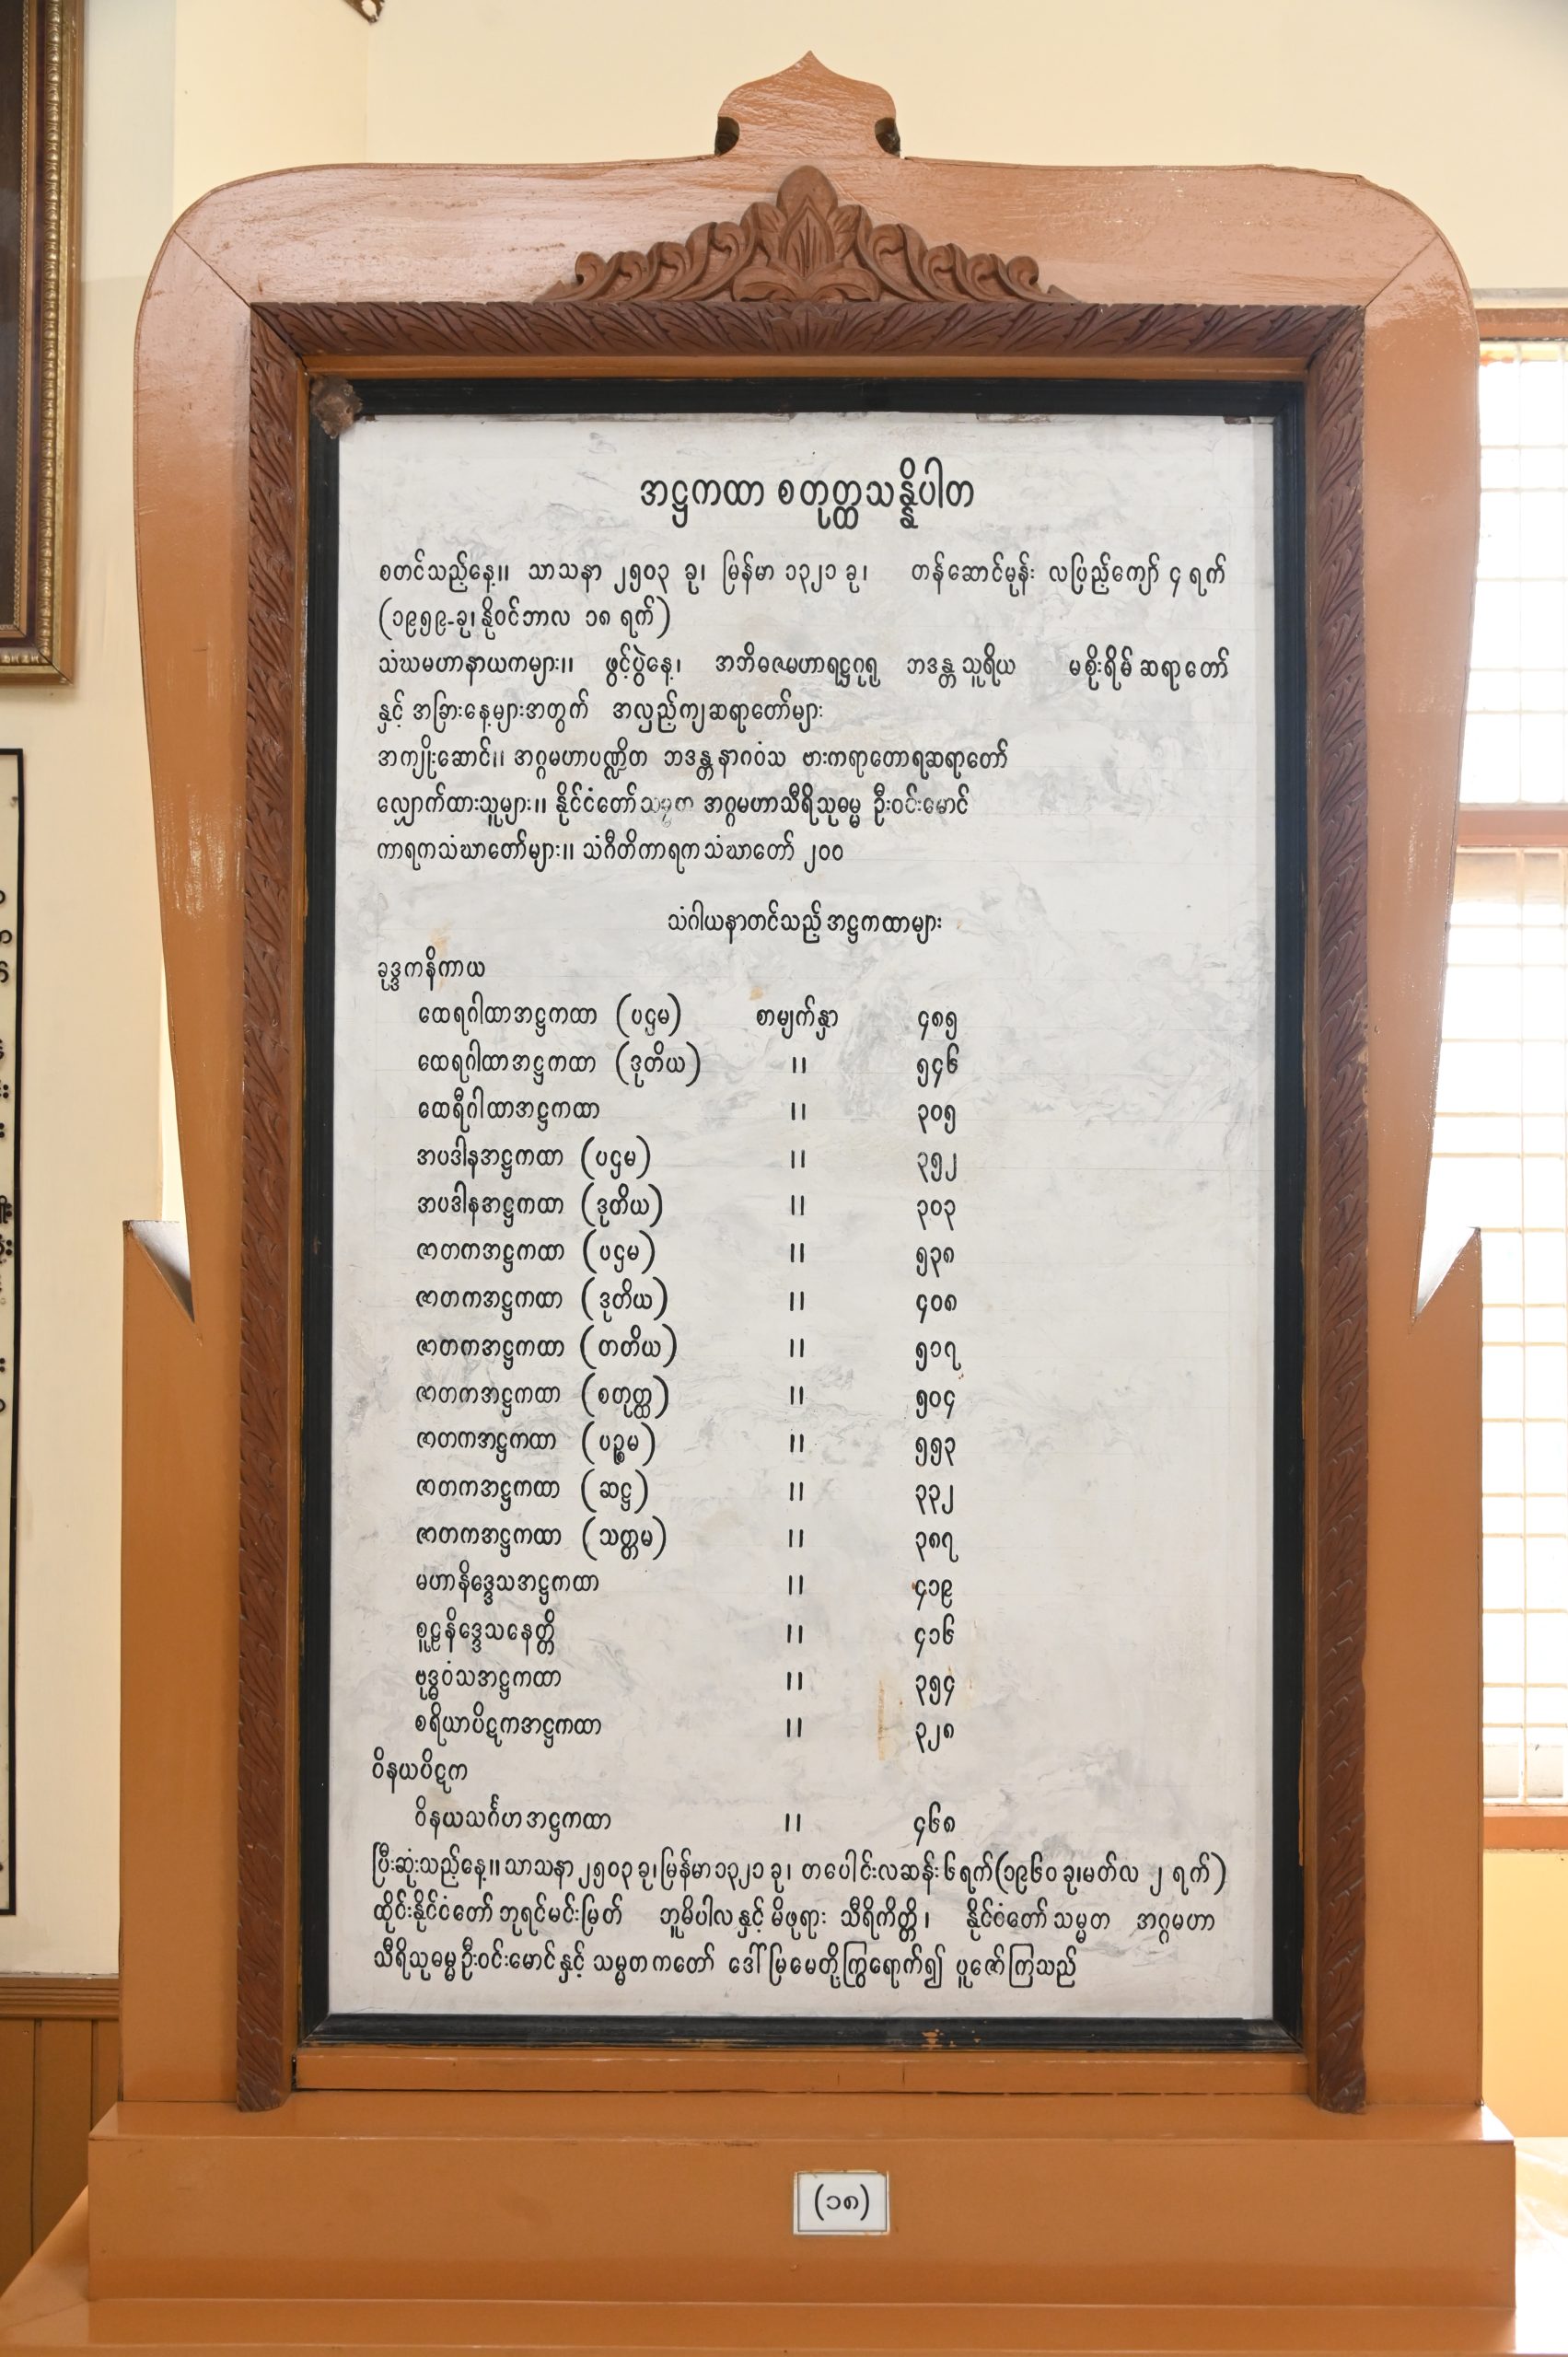 အဋ္ဌကထာ စတုတ္ထသန္နိပါတ
စတင်သည့်နေ့။ သာသနာ ၂၅၀၃ ခု၊ မြန်မာ ၁၃၂၁ ခု၊ တန်ဆောင်မုန်း လပြည့်ကျော် ၄ ရက်
(၁၉၅၉-ခု၊ နိုဝင်ဘာလ ၁၈ ရက်)
သံဃမဟာနာယကများ။ ဖွင့်ပွဲနေ့၊ အဘိဓဇမဟာရဋ္ဌဂုရု ဘဒန္တ သူရိယ မစိုးရိမ် ဆရာတော်
နှင့် အခြားနေ့များအတွက် အလှည့်ကျဆရာတော်များ
အကျိုးဆောင်။ အဂ္ဂမဟာပဏ္ဍိတ ဘဒန္တ နာဂဝံသ ဗားကရာတောရဆရာတော်
လျှောက်ထားသူများ။ နိုင်ငံတော် သမ္မတ အဂ္ဂမဟာသီရိသုဓမ္မ ဦးဝင်းမောင်
ကာရကသံဃာတော်များ။ သံဂီတိကာရက သံဃာတော် ၂၀၀
သံဂါယနာတင်သည့် အဋ္ဌကထာများ
ခုဒ္ဒကနိကာယ
ထေရဂါထာအဋ္ဌကထာ (ပဌမ) စာမျက်နှာ ၄၈၅
ထေရဂါထာအဋ္ဌကထာ (ဒုတိယ) ။ ၅၄၆
ထေရီဂါထာအဋ္ဌကထာ ။ ၃၀၅
အပဒါနအဋ္ဌကထာ (ပဌမ) ။ ၃၅၂
အပဒါနအဋ္ဌကထာ (ဒုတိယ) ။ ၃၀၃
ဇာတကအဋ္ဌကထာ (ပဌမ) ။ ၅၃၈
ဇာတကအဋ္ဌကထာ (ဒုတိယ) ။ ၄၀၈
ဇာတကအဋ္ဌကထာ (တတိယ) ။ ၅၁၇
ဇာတကအဋ္ဌကထာ (စတုတ္ထ) ။ ၅၀၄
ဇာတကအဋ္ဌကထာ (ပဉ္စမ) ။ ၅၅၃
ဇာတကအဋ္ဌကထာ (ဆဋ္ဌ) ။ ၃၃၂
ဇာတကအဋ္ဌကထာ (သတ္တမ) ။ ၃၈၇
မဟာနိဒ္ဒေသအဋ္ဌကထာ ။ ၄၁၉
စူဠနိဒ္ဒေသနေတ္တိ ။ ၄၁၆
ဗုဒ္ဓဝံသအဋ္ဌကထာ ။ ၃၅၄
စရိယာပိဋကအဋ္ဌကထာ ။ ၃၂၈
ဝိနယပိဋက
ဝိနယသင်္ဂဟအဋ္ဌကထာ ။ ၄၆၈
ပြီးဆုံးသည့်နေ့။ သာသနာ ၂၅၀၃ ခု၊ မြန်မာ ၁၃၂၁ ခု၊ တပေါင်းလဆန်း ၆ ရက် (၁၉၆၀ ခု၊ မတ်လ ၂ ရက်)
ထိုင်းနိုင်ငံတော် ဘုရင်မင်းမြတ် ဘူမိပါလ နှင့် မိဖုရား သီရိကိတ္တိ၊ နိုင်ငံတော် သမ္မတ အဂ္ဂမဟာ
သီရိသုဓမ္မ ဦးဝင်းမောင် နှင့် သမ္မတ ကတော် ဒေါ်မြမေတို့ကြွရောက်၍ ပူဇော်ကြသည်
(၁၈)